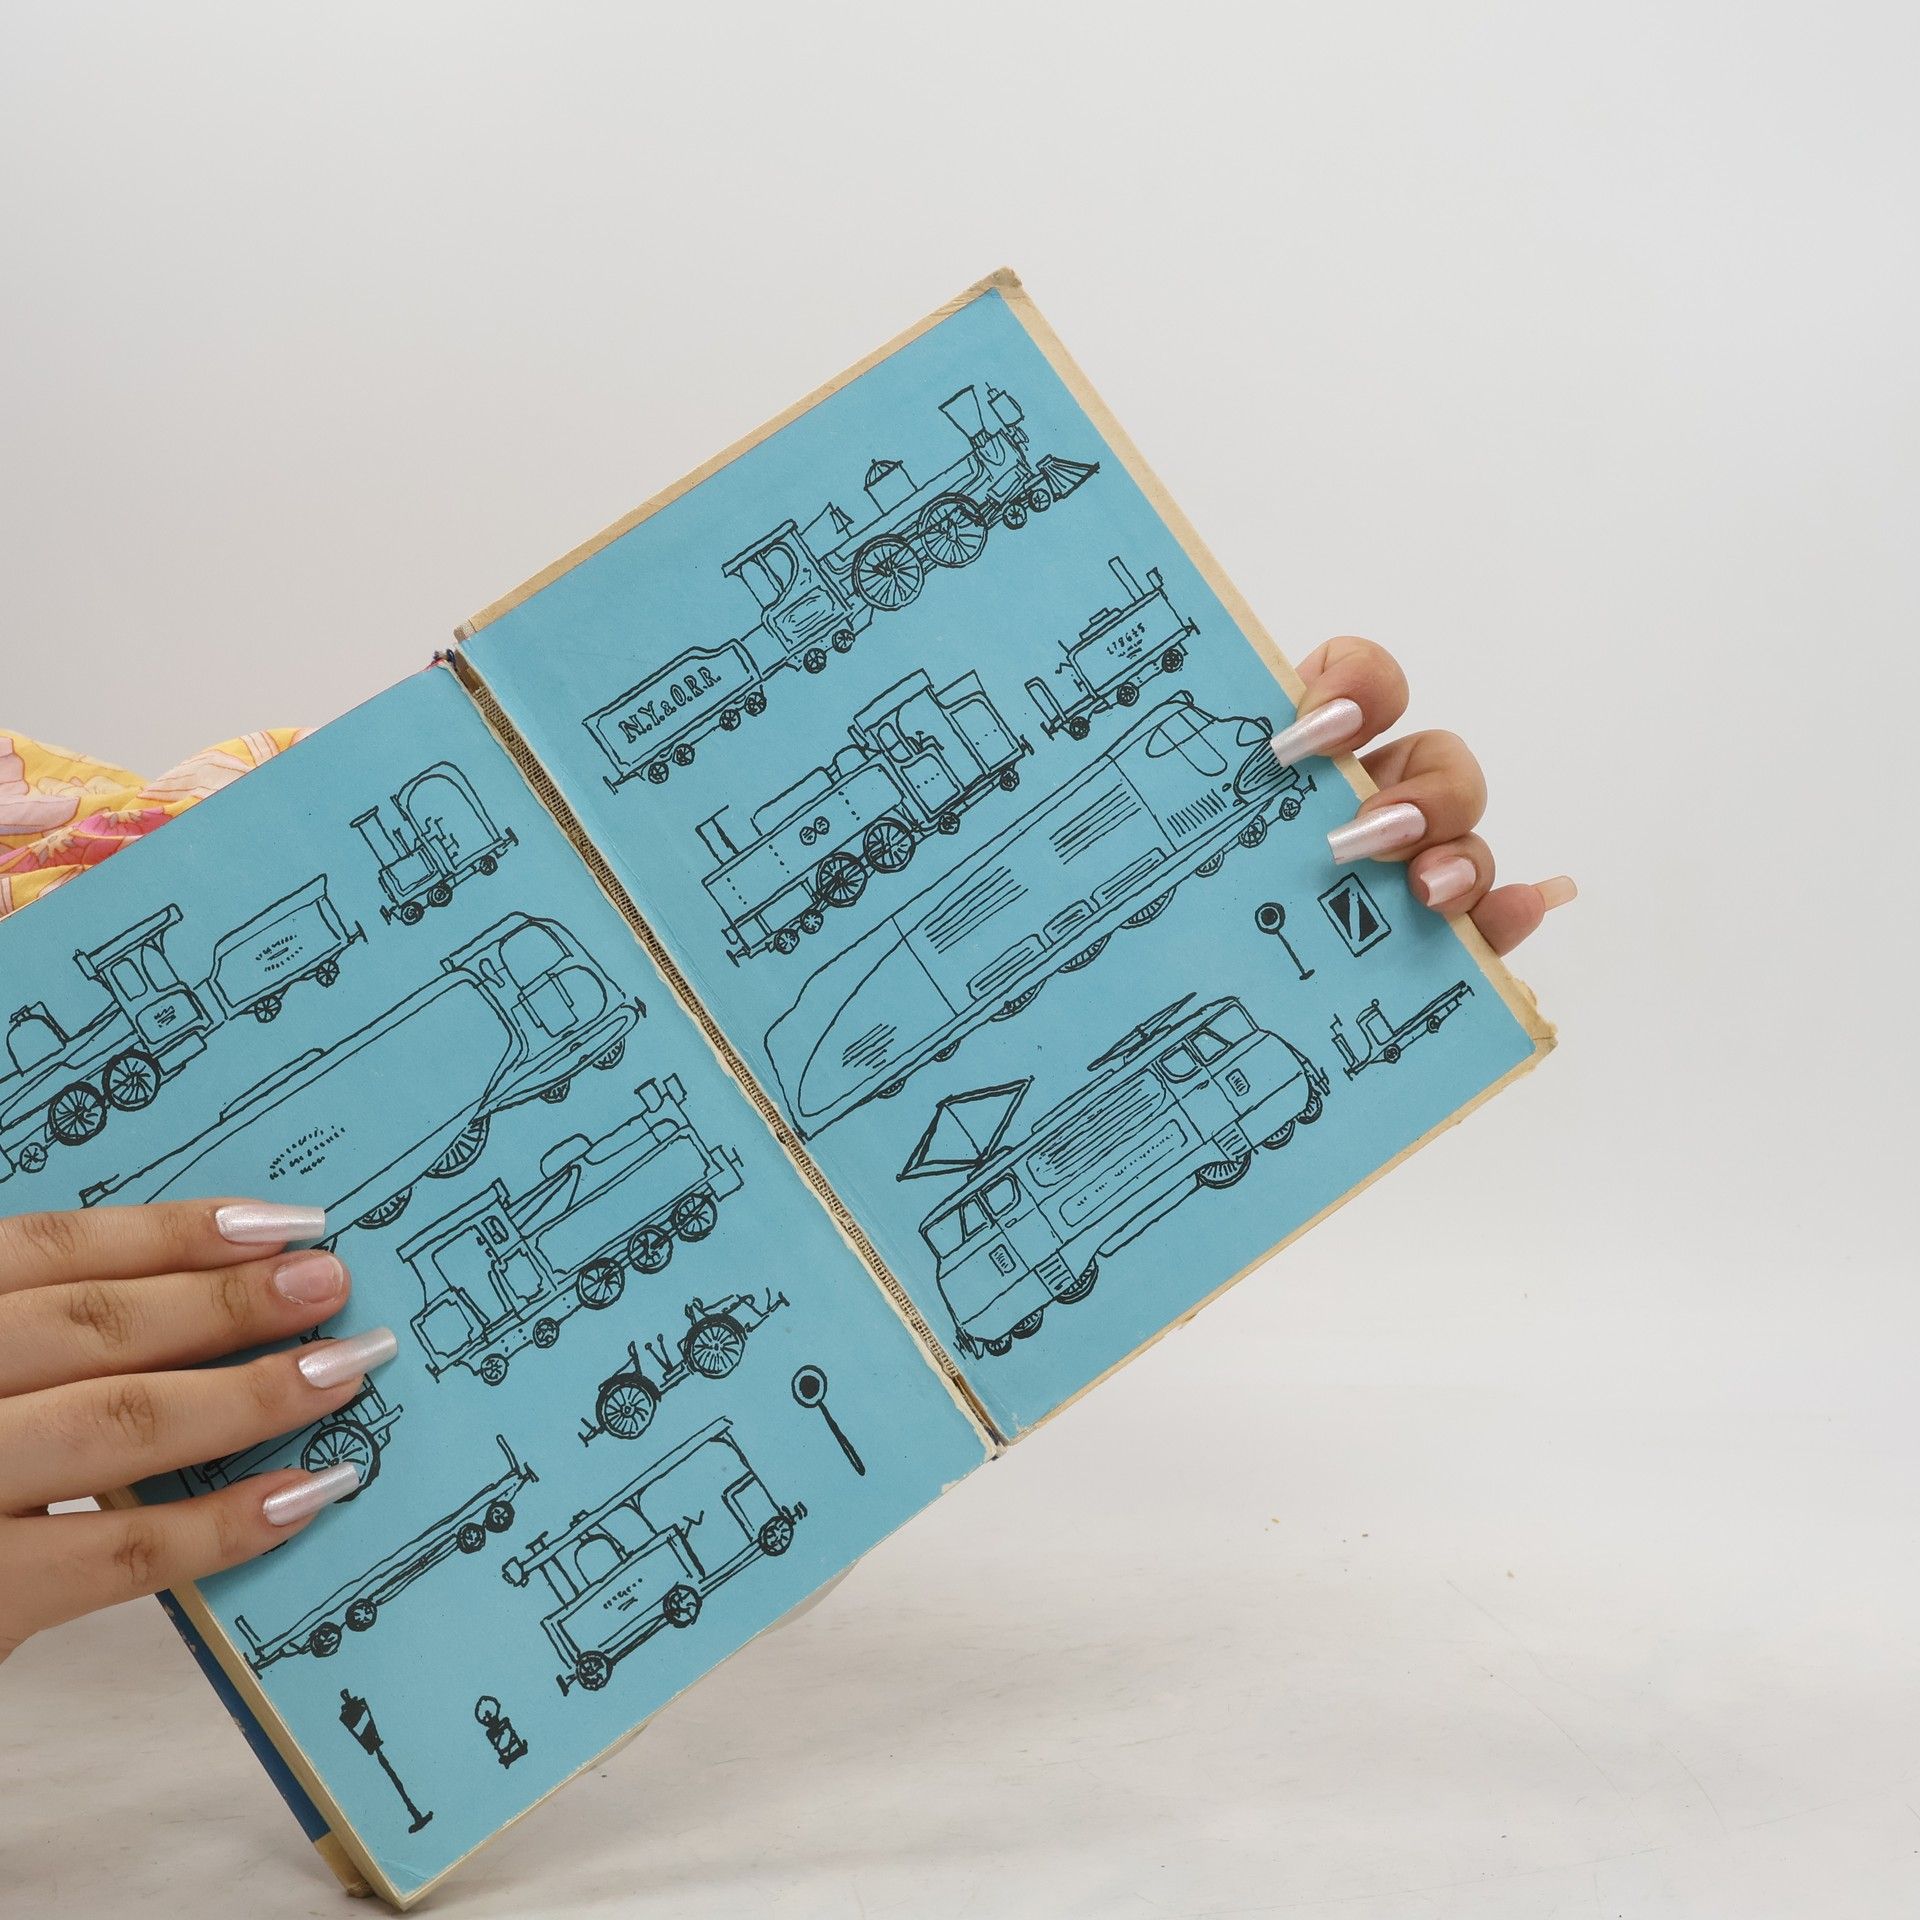 N.Y. & O.R.R.
178645